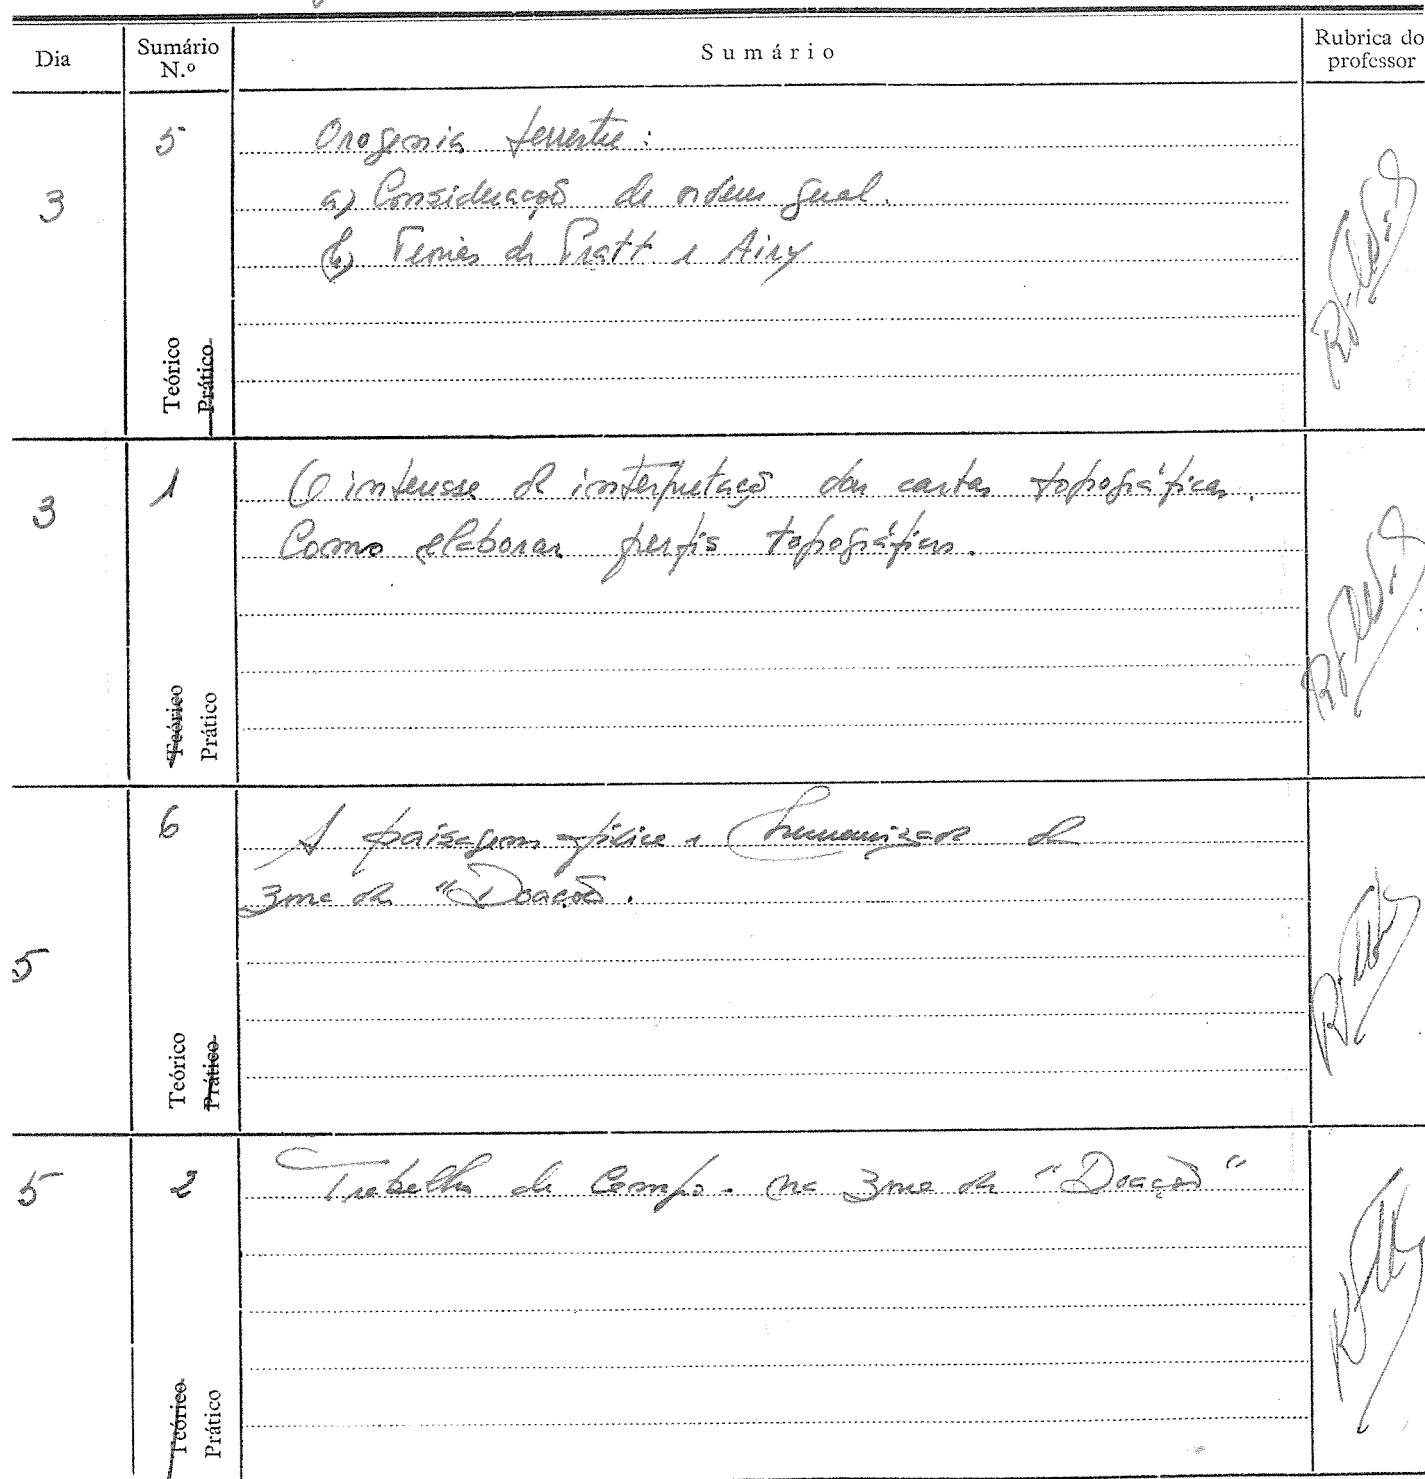 Dia Sumário N.º Sumário Rubrica do professor
3 5 Orogenia terrestre:
a) Considerações de ordem geral.
b) Teorias de Pratt e Airy
Teórico Prático
3 1 O interesse da interpretação das cartas topográficas.
Como elaborar perfis topográficos.
Teórico Prático
5 6 A paisagem física e humanizada da
zona da "Doação.
Teórico Prático
5 2 Trabalho de Campo na zona da "Doação"
Teórico Prático